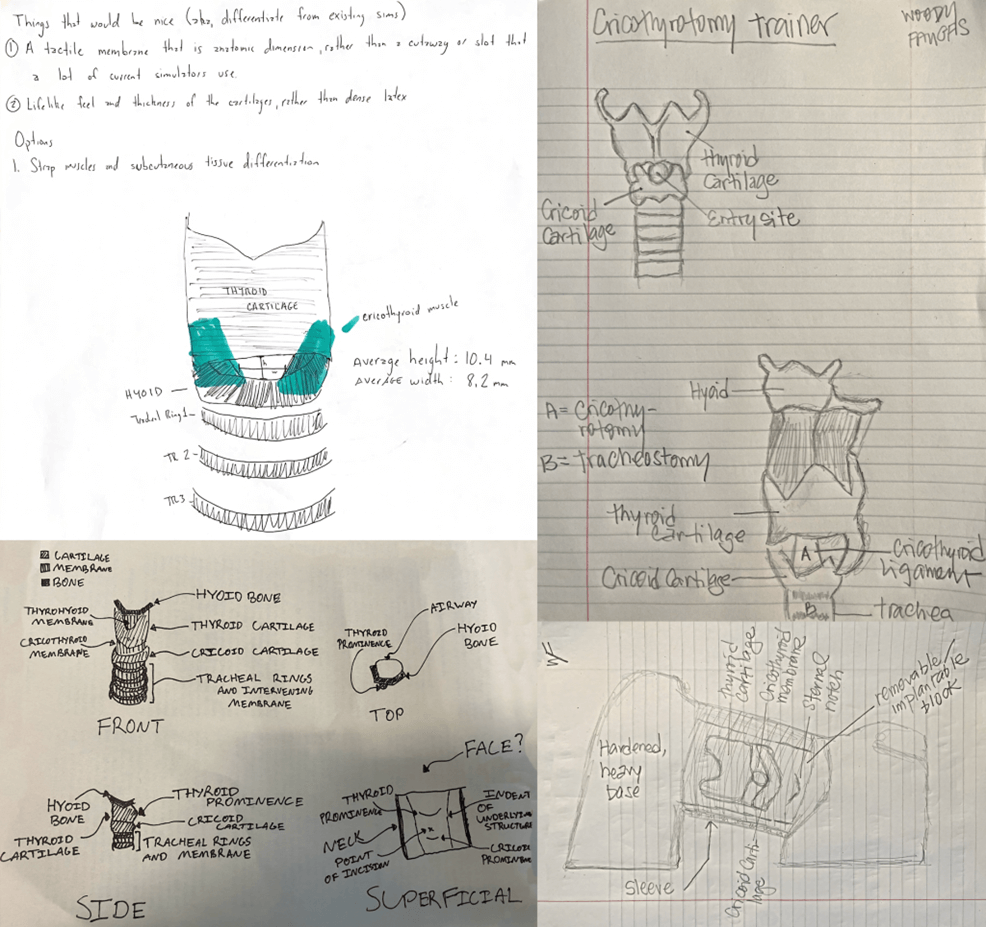 Things that would be nice (aka, differentiate from existing sims)
① A tactile membrane that is anatomic dimension, rather than a cutaway or slot that
a lot of current simulators use.
② Lifelike feel and thickness of the cartilages, rather than dense latex
Options
1. Strap muscles and subcutaneous tissue differentiation
THYROID
CARTILAGE
cricothyroid muscle
Average height: 10.4 mm
AVERAGE width: 8.2 mm
HYOID
Tracheal Ring 1
TR 2
TR3
Cricothyrotomy trainer
WOODY
thyroid
Cartilage
Cricoid
Cartilage
Entry site
Hyoid
A = Cricothy-
rotomy
B = tracheostomy
thyroid
cartilage
A
Cricothyroid
ligament
Cricoid Cartilage
B
trachea
CARTILAGE
MEMBRANE
BONE
HYOID BONE
THYROHYOID
MEMBRANE
THYROID CARTILAGE
CRICOTHYROID
MEMBRANE
CRICOID CARTILAGE
TRACHEAL RINGS
AND INTERVENING
MEMBRANE
FRONT
AIRWAY
THYROID
PROMINENCE
HYOID
BONE
TOP
HYOID
BONE
THYROID
PROMINENCE
CRICOID
CARTILAGE
THYROID
CARTILAGE
TRACHEAL RINGS
AND MEMBRANE
SIDE
FACE?
THYROID
PROMINENCE
INDENT
OF
UNDERLYING
STRUCTURE
NECK
POINT
OF INCISION
x
CRICOID
PROMINENCE
SUPERFICIAL
WF
Hardened,
heavy
base
thyroid
cartilage
Cricothyroid
membrane
Sternal
notch
removable/
implantable
block
Sleeve
Cricoid Carti-
lage